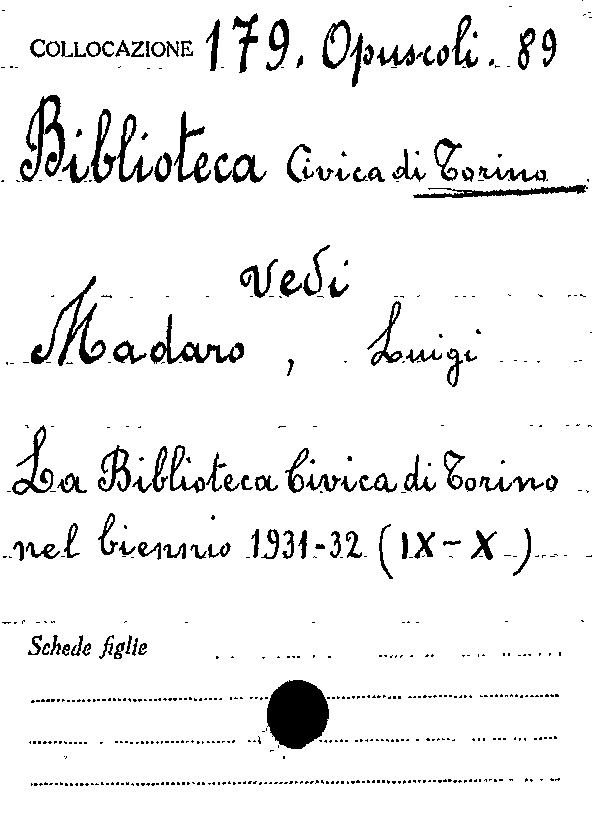 COLLOCAZIONE 179. Opuscoli. 89
Biblioteca Civica di Torino
vedi
Madaro, Luigi
La Biblioteca Civica di Torino
nel biennio 1931-32 (IX-X)
Schede figlie